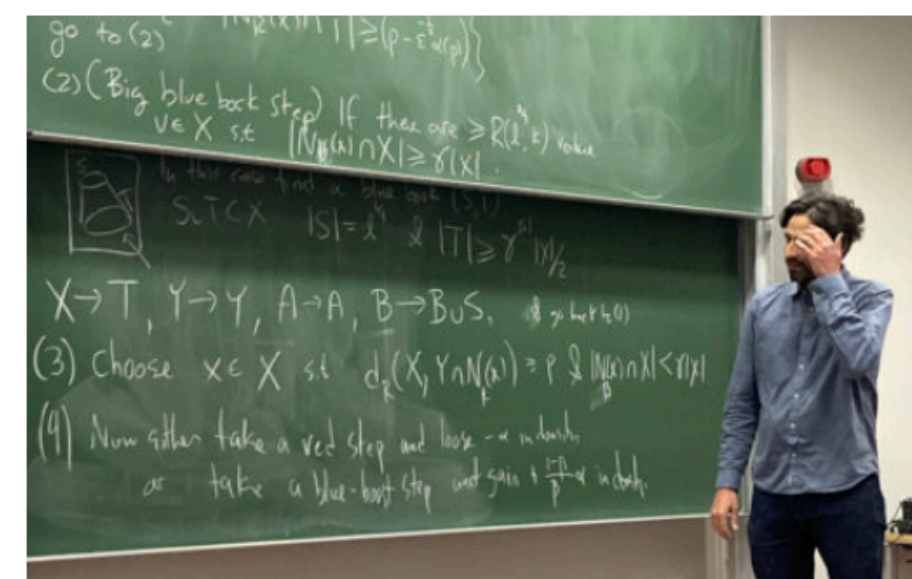 go to (2) |N_R(x)∩Y| ≥ (p-ε^{-½}α(p))}
(2) (Big blue book step) If there are ≥ R(l^{⅔}, k) value
v∈X s.t |N_B(x)∩X| ≥ γ|X|.
In this case find a blue book (S,T)
S,T⊂X |S|=l^{¼} & |T| ≥ γ^{|S|}|X|/2
X→T, Y→Y, A→A, B→B∪S. & go back to (1)
(3) Choose x∈X s.t d_R(X, Y∩N_R(x)) ≥ p & |N_B(x)∩X| < γ|X|
(4) Now either take a red step and loose -α in density
or take a blue-book step and gain + (1-β)/β α in